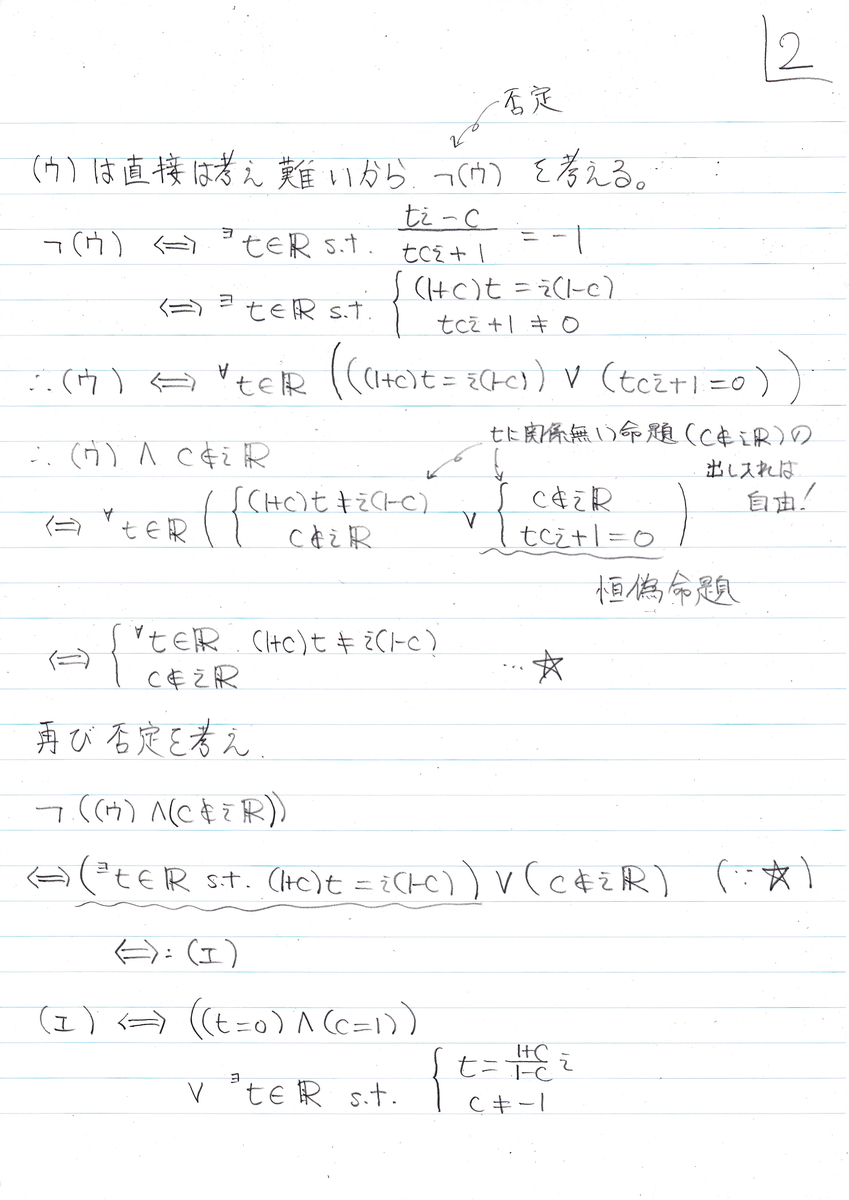 2
否定
(ウ)は直接は考え難いから、¬(ウ) を考える。
¬(ウ) ⟺ ∃t∈ℝ s.t. (ti-c)/(tci+1) = -1
⟺ ∃t∈ℝ s.t. { (1+c)t = i(1-c)
tci+1 ≠ 0
∴(ウ) ⟺ ∀t∈ℝ (((1+c)t = i(1-c)) ∨ (tci+1=0))
tに関係無い命題(c∉iℝ)の
出し入れは
自由!
∴ (ウ) ∧ c∉iℝ
⟺ ∀t∈ℝ ( { (1+c)t ≠ i(1-c) ∨ { c∉iℝ )
c∉iℝ tci+1=0
恒偽命題
⟺ { ∀t∈ℝ. (1+c)t ≠ i(1-c)
c∉iℝ …☆
再び否定を考え、
¬((ウ)∧(c∉iℝ))
⟺ (∃t∈ℝ s.t. (1+c)t = i(1-c)) ∨ (c∉iℝ) (∵☆)
⟺: (エ)
(エ) ⟺ ((t=0)∧(c=1))
∨ ∃t∈ℝ s.t. { t = (1+c)/(1-c) i
c ≠ -1